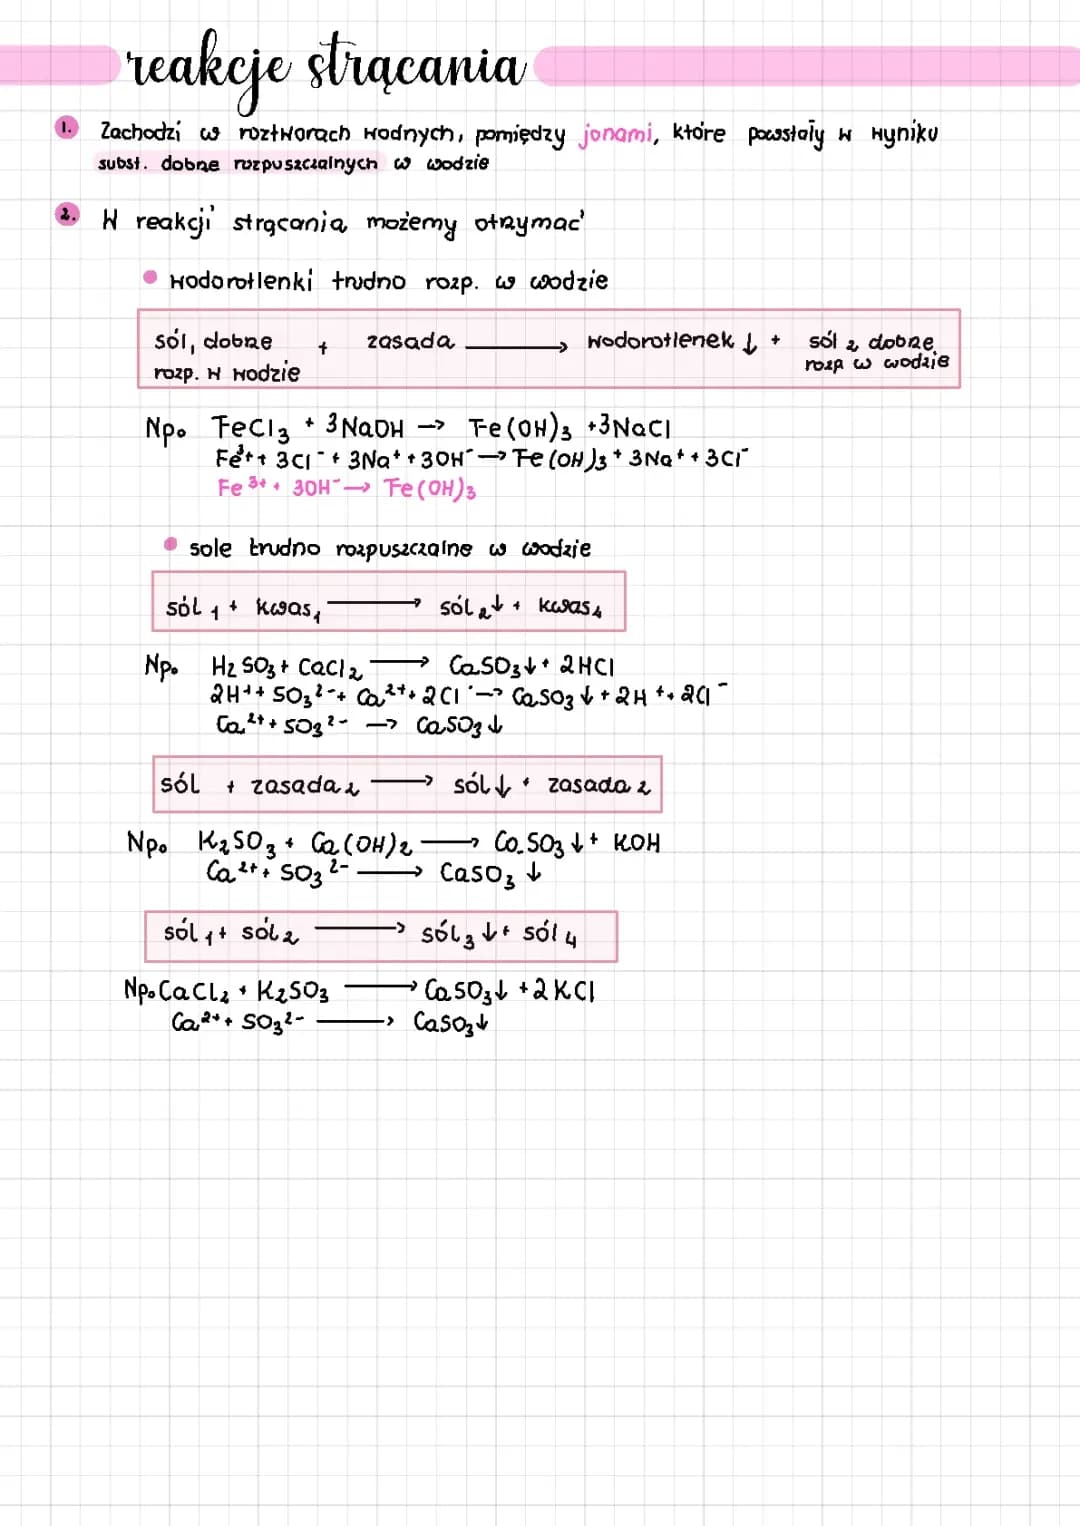 reakcje strącania
1. Zachodzi w roztworach wodnych, pomiędzy jonami, które powstały w wyniku
subst. dobrze rozpuszczalnych w wodzie
2. W reakcji strącania możemy otrzymać
• wodorotlenki trudno rozp. w wodzie
sól₁ dobrze rozp. w wodzie + zasada ⟶ wodorotlenek ↓ + sól₂ dobrze rozp w wodzie
Np. FeCl₃ + 3NaOH → Fe(OH)₃ +3NaCl
Fe³⁺ + 3Cl⁻ + 3Na⁺ + 3OH⁻ → Fe(OH)₃ + 3Na⁺ + 3Cl⁻
Fe³⁺ + 3OH⁻ → Fe(OH)₃
• sole trudno rozpuszczalne w wodzie
sól₁ + kwas₁ ⟶ sól₂↓ + kwas₄
Np. H₂SO₃ + CaCl₂ ⟶ CaSO₃↓ + 2HCl
2H⁺ + SO₃²⁻ + Ca²⁺ + 2Cl⁻ → CaSO₃↓ + 2H⁺ + 2Cl⁻
Ca²⁺ + SO₃²⁻ → CaSO₃↓
sól + zasada₂ ⟶ sól↓ + zasada₂
Np. K₂SO₃ + Ca(OH)₂ ⟶ CaSO₃↓ + KOH
Ca²⁺ + SO₃²⁻ ⟶ CaSO₃↓
sól₁ + sól₂ ⟶ sól₃↓ + sól₄
Np. CaCl₂ + K₂SO₃ ⟶ CaSO₃↓ +2KCl
Ca²⁺ + SO₃²⁻ ⟶ CaSO₃↓